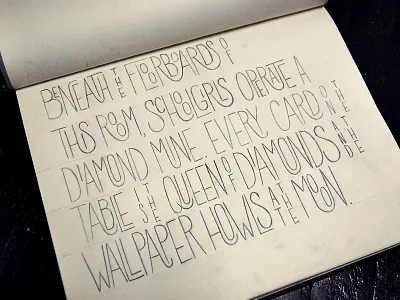 BENEATH THE FLOORBOARDS OF
THIS ROOM, SCHOOLGIRLS OPERATE A
DIAMOND MINE. EVERY CARD ON THE
TABLE IS THE QUEEN OF DIAMONDS AND THE
WALLPAPER HOWLS AT THE MOON.